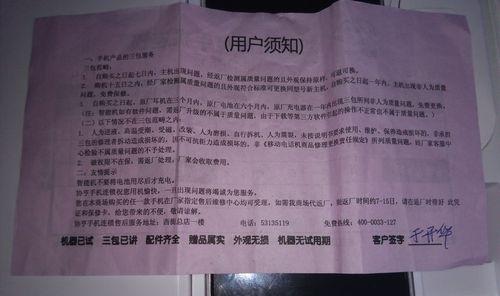 (用户须知)
一、手机产品的三包服务
三包范畴:
1. 自购买之日起七日内,主机出现问题,经返厂检测属质量问题的且外观保持原样,可退可换。
2. 购机十五日之内,经厂家检测属质量问题的且外观符合标准可更换同型号新主机,自购买之日起一年内,主机出现非人为质量
问题,免费保修。
3. 自购买之日起,原厂耳机在三个月内,原厂电池在六个月内,原厂充电器在一年内出现三包所列非人为质量问题,免费更换;
(注:智能机如有软件问题,需返厂升级的不属于质量问题,由于下载等第三方软件引起的操作不正常也不属于质量问题。)
(二)以下情况不在三包范畴之内:
1. 人为进液、高温受潮、受磁、改装、人为磨损、自行拆机、人为震裂、未按说明书要求使用、维护、保养造成损坏的,非承担
三包的维修者拆动造成损坏的,因不可抗拒力造成损坏的,非《移动电话机商品修理更换责任规定》所列质量问题,经厂家客服中
心检验不属质量问题的不予处理。
2. 磁极现不在保,需返厂处理,厂家会收取费用。
二:友情提示
智能机不要将电池用尽后才充电。
协亨手机连锁祝您用机愉快,一旦出现问题将竭诚为您服务。
您在本商场购买的任一款手机在厂家指定售后维修中心均可受理。如需我商场代返厂,则返厂时间约7-15日,请在返厂时带好此凭
证和保修卡,给您带来的不便,敬请谅解。
协亨手机连锁售后服务地址:西街总店一楼 电话:53135119 免费长线:400-0033-127
机器已试 三包已讲 配件齐全 赠品属实 外观无损 机器无试用期 客户签字